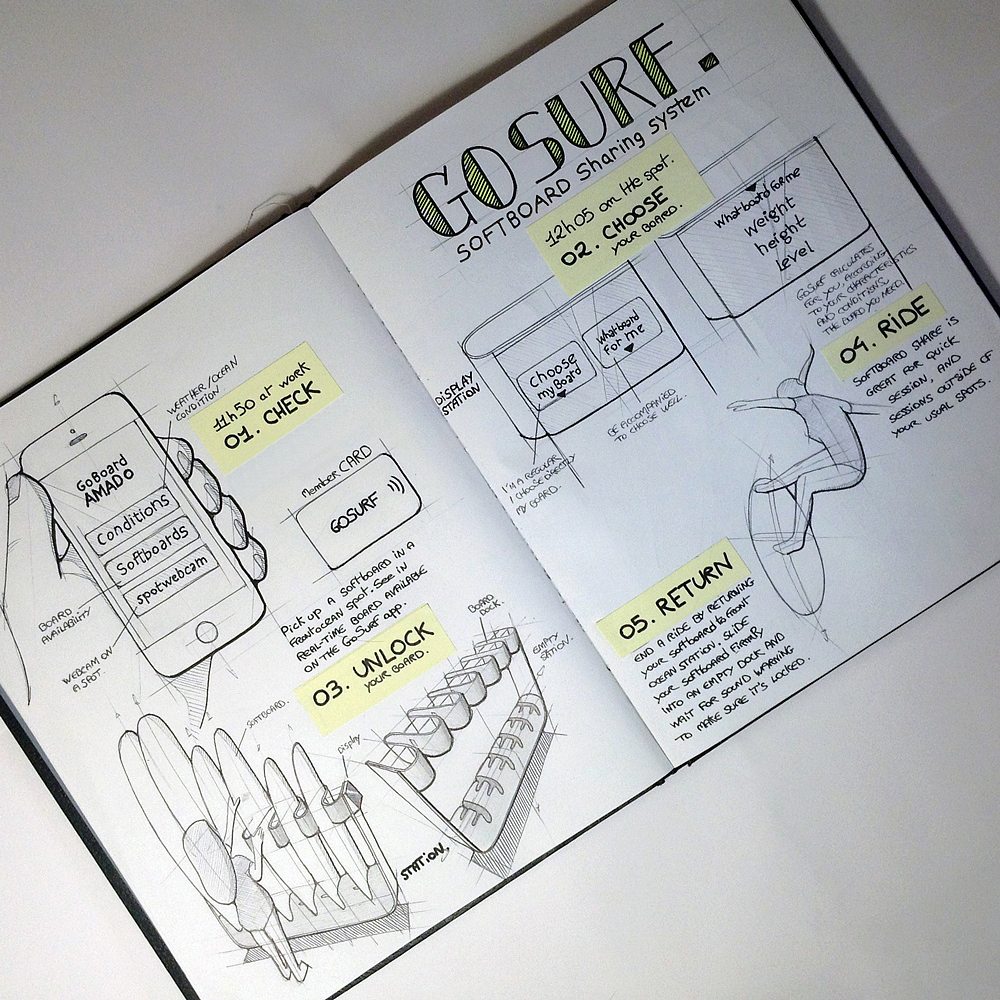 GO SURF.
SOFTBOARD Sharing system
11h50 at work
01. CHECK
WEATHER/OCEAN
CONDITION
GoBoard
AMADO
Conditions
Softboards
spotwebcam
BOARD
AVAILABILITY
WEBCAM ON
A SPOT.
Member CARD
GOSURF
Pick up a softboard in a
front ocean spot. See in
real-time board available
on the GoSurf app.
12h05 on the spot.
02. CHOOSE
YOUR BOARD.
DISPLAY
STATION
Choose
my Board
What board
for me
I'M A REGULAR
I CHOOSE DIRECTLY
MY BOARD.
BE ACCOMPANIED
TO CHOOSE WELL.
What board for me
Weight
height
Level
GOSURF CALCULATES
FOR YOU, ACCORDING
TO YOUR CHARACTERISTICS
AND CONDITIONS.
THE BOARD YOU NEED!
03. UNLOCK
YOUR BOARD.
SOFTBOARD.
Display
BOARD
DOCK.
EMPTY
STATION.
STATION.
04. RIDE
SOFTBOARD SHARE IS
GREAT FOR QUICK
SESSION, AND
SESSIONS OUTSIDE OF
YOUR USUAL SPOTS.
05. RETURN
END A RIDE BY RETURNING
YOUR SOFTBOARD to FRONT
OCEAN STATION. SLIDE
YOUR SOFTBOARD FIRMLY
INTO AN EMPTY DOCK AND
WAIT FOR SOUND WARNING
TO MAKE SURE IT'S LOCKED.